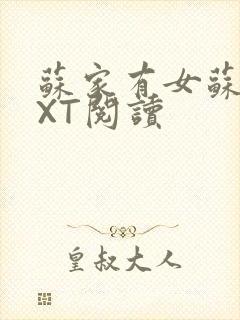 蘇家有女蘇
XT閱讀
皇叔大人